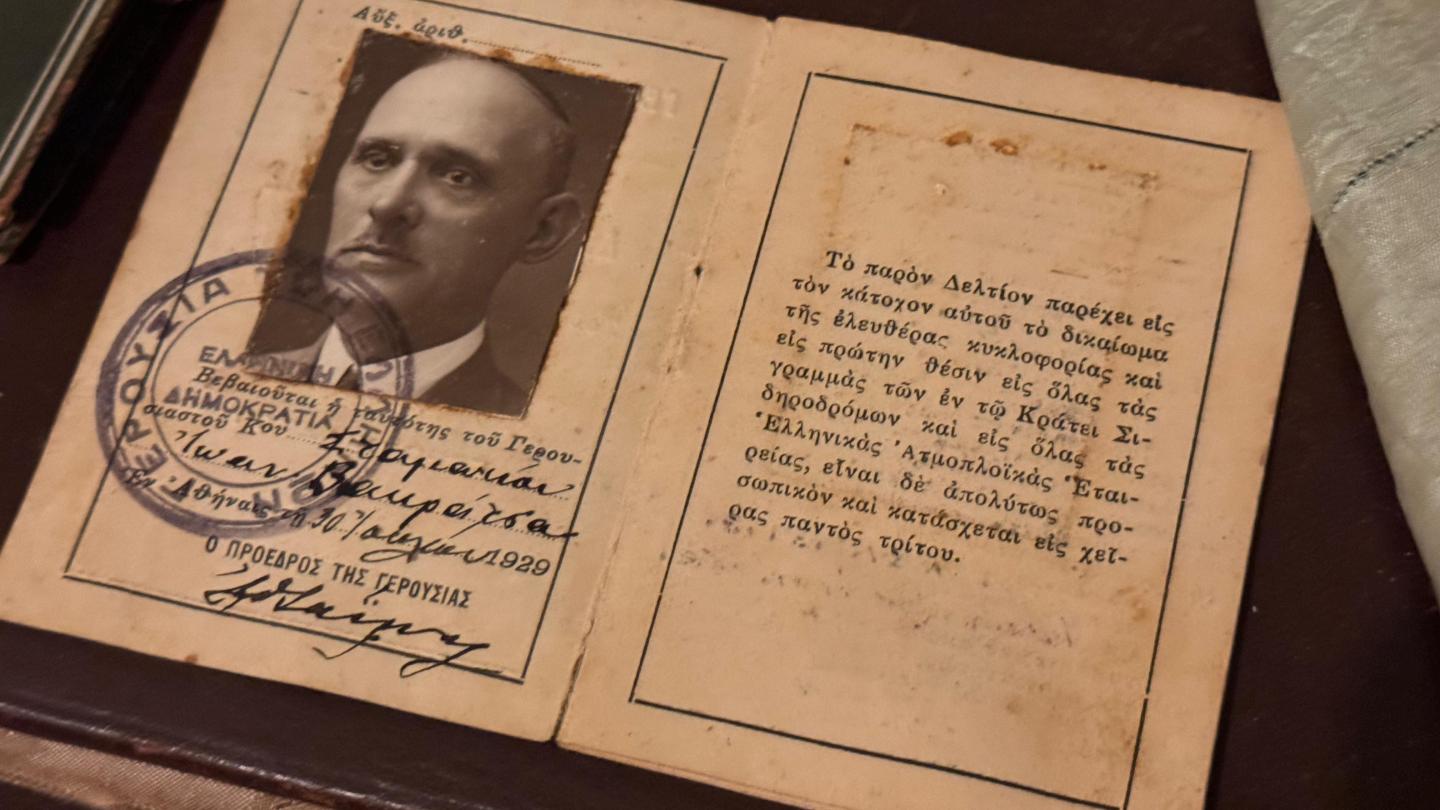 Αὔξ. ἀριθ.
ΓΕΡΟΥΣΙΑ ΤΩΝ ΕΛΛΗΝΩΝ
ΕΛΛΗΝΙΚΗ
ΔΗΜΟΚΡΑΤΙΑ
Βεβαιοῦται ἡ ταυτότης τοῦ Γερου-
σιαστοῦ Κου Σταματίου
Ἰωάν
Ἐν Ἀθήναις τῇ 30 1929
Ο ΠΡΟΕΔΡΟΣ ΤΗΣ ΓΕΡΟΥΣΙΑΣ
Τὸ παρὸν Δελτίον παρέχει εἰς
τὸν κάτοχον αὐτοῦ τὸ δικαίωμα
τῆς ἐλευθέρας κυκλοφορίας καὶ
εἰς πρώτην θέσιν εἰς ὅλας τὰς
γραμμὰς τῶν ἐν τῷ Κράτει Σι-
δηροδρόμων καὶ εἰς ὅλας τὰς
Ἑλληνικὰς Ἀτμοπλοϊκὰς Ἑται-
ρείας, εἶναι δὲ ἀπολύτως προ-
σωπικὸν καὶ κατάσχεται εἰς χεῖ-
ρας παντὸς τρίτου.